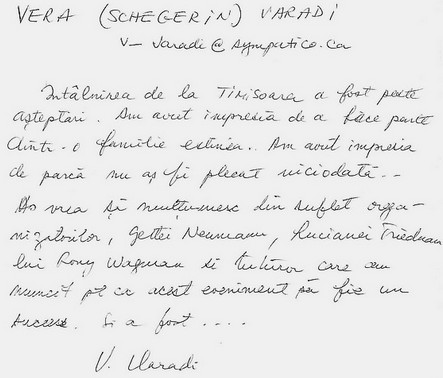 VERA (SCHEGERIN) VARADI
v-varadi@sympatico.ca
Intâlnirea de la TIMISOARA a fost peste
aşteptări. Am avut impresia de a face parte
dintr-o familie estinsa. Am avut impresia
de parcă nu aş fi plecat niciodată..
Aş vrea să mulţumesc din suflet orga-
nizatorilor, Gettei Neumann, Lucianei Friedmann
lui Rony Wagman si tuturor care au
muncit pt ca acest eveniment să fie un
succes. Si a fost ....
V. Varadi